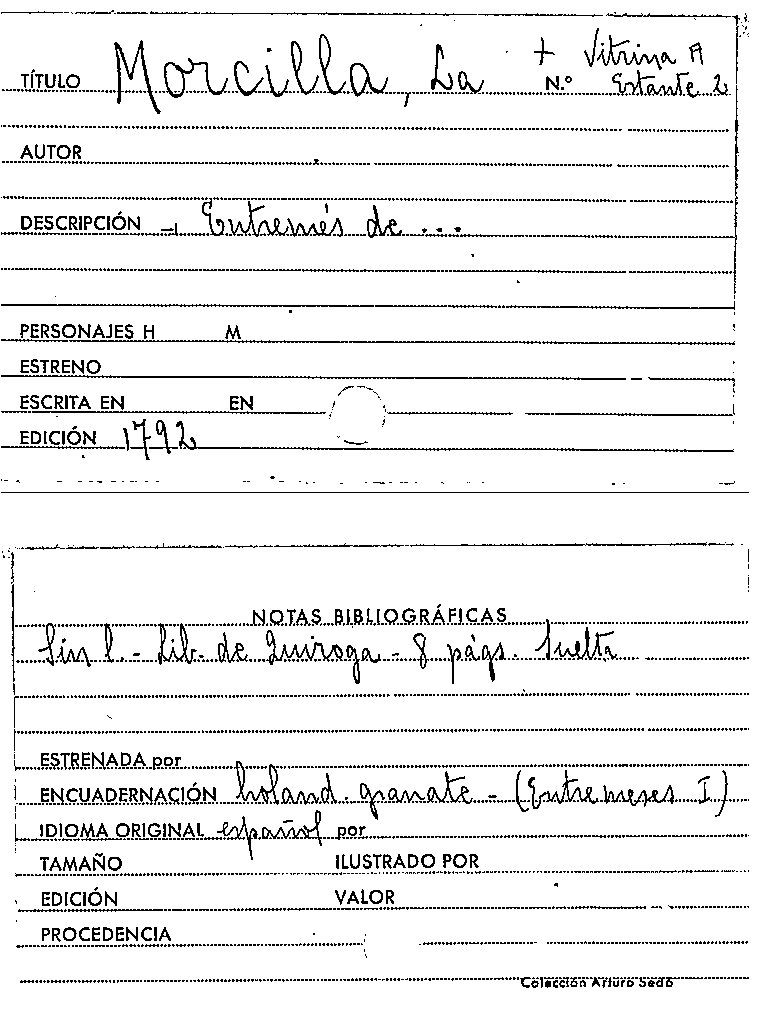 + Vitrina A
TÍTULO Morcilla, La N.º Estante 2
AUTOR
DESCRIPCIÓN Entremés de ...
PERSONAJES H M
ESTRENO
ESCRITA EN EN
EDICIÓN 1792
NOTAS BIBLIOGRÁFICAS
Sin l. - Lib. de Quiroga - 8 págs. Suelta
ESTRENADA por
ENCUADERNACIÓN holand. granate - (Entremeses I)
IDIOMA ORIGINAL español por
TAMAÑO ILUSTRADO POR
EDICIÓN VALOR
PROCEDENCIA
Colección Arturo Sedó